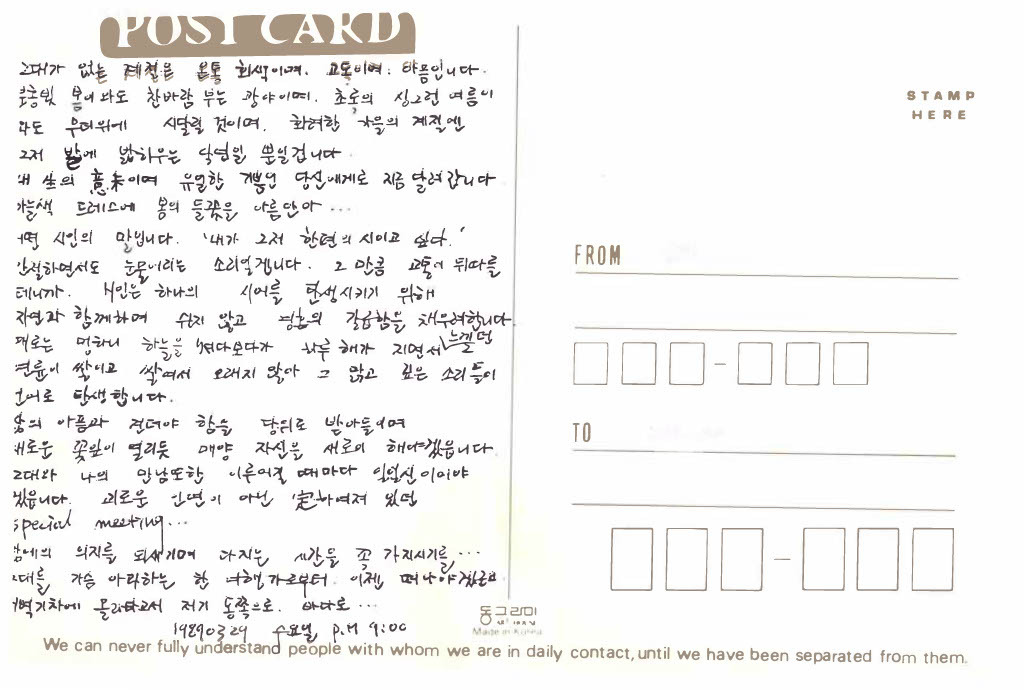 POST CARD
그대가 없는 계절은 온통 회색이며. 고통이며. 아픔입니다.
분홍빛 봄이 와도 찬바람 부는 광야이며. 초록의 싱그런 여름이
와도 무더위에 시달릴 것이며. 화려한 가을의 계절엔
그저 밟에 밟히우는 낙엽일 뿐일겁니다.
내 生의 意味이며 유일한 기쁨인 당신에게로 지금 달려갑니다
하늘색 드레스에 봄의 들꽃을 아름안아 ...
어떤 시인의 말입니다. '내가 그저 한편의 시이고 싶다.'
간절하면서도 눈물어리는 소리일겝니다. 그 만큼 고통이 뒤따를
테니까. 시인은 하나의 시어를 탄생시키기 위해
자연과 함께하며 쉬지 않고 영혼의 갈급함을 채우려합니다.
때로는 멍하니 하늘을 쳐다보다가 하루 해가 지면서 느낄던
연륜이 쌓이고 쌓여서 오래지 않아 그 많고 깊은 소리들이
언어로 탄생합니다.
의 아픔과 견뎌야 함을 당위로 받아들이며
새로운 꽃잎이 열리듯 매양 자신을 새로이 해야겠읍니다.
그대와 나의 만남또한 이루어질 때마다 이어야
겠읍니다. 괴로운 인연이 아닌 定하여져 있던
special meeting...
의 의지를 되새기며 다지는 시간을 꼭 가지시기를 ...
그대를 가슴 아파하는 한 여행가로부터. 이젠 떠나야겠군요
새벽기차에 몰라타고서 저기 동쪽으로. 바다로 ...
19890329 수요일, P.M 9:00
동그라미
ART HOUSE
Made in Korea
We can never fully understand people with whom we are in daily contact, until we have been separated from them.
STAMP
HERE
FROM
TO